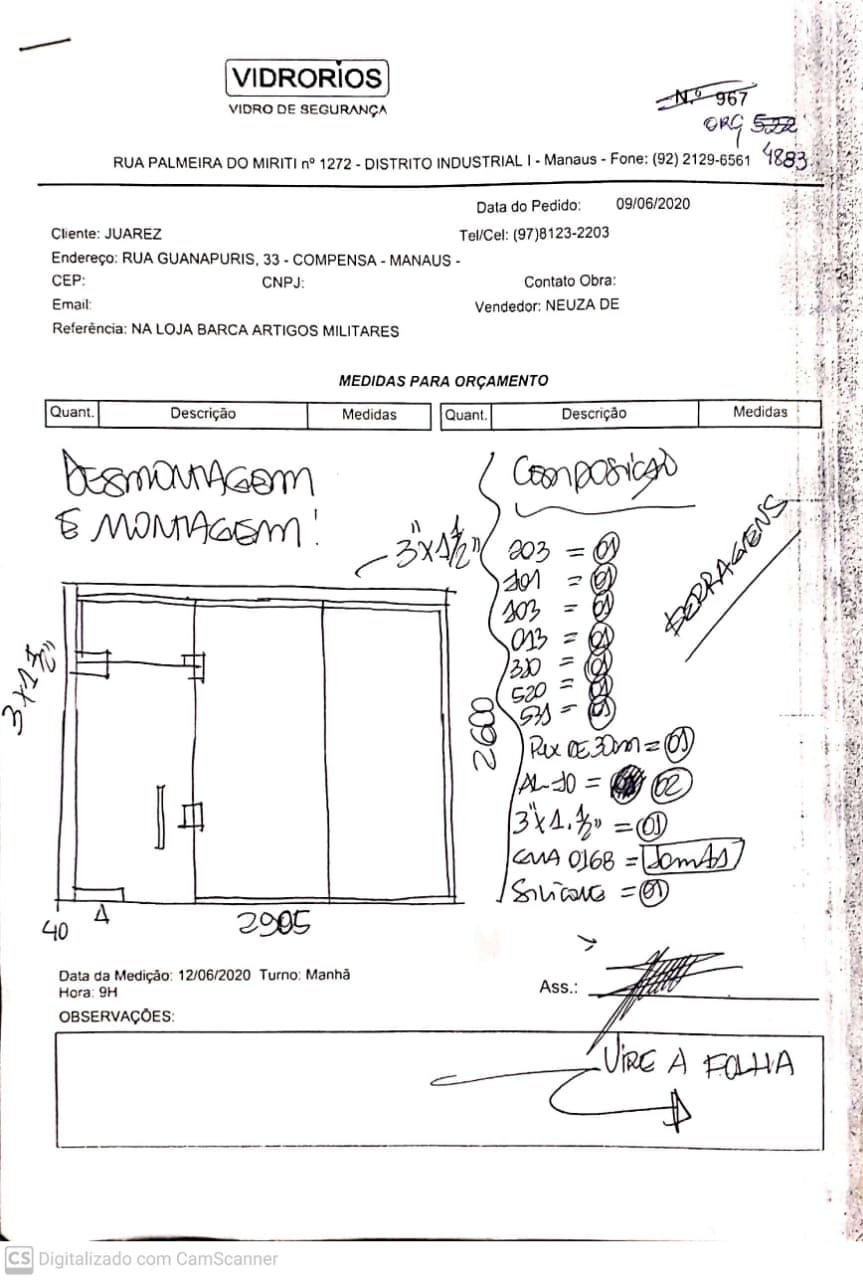 VIDRORIOS
VIDRO DE SEGURANÇA
N.º 967
ORÇ 522
4883
RUA PALMEIRA DO MIRITI nº 1272 - DISTRITO INDUSTRIAL I - Manaus - Fone: (92) 2129-6561
Data do Pedido: 09/06/2020
Cliente: JUAREZ Tel/Cel: (97)8123-2203
Endereço: RUA GUANAPURIS, 33 - COMPENSA - MANAUS -
CEP: CNPJ: Contato Obra:
Email: Vendedor: NEUZA DE
Referência: NA LOJA BARCA ARTIGOS MILITARES
MEDIDAS PARA ORÇAMENTO
Quant. Descrição Medidas Quant. Descrição Medidas
DESMONTAGEM
E MONTAGEM!
3"x1½"
3x1½"
2600
40
2905
COMPOSIÇÃO
203 = 01
101 = 01
103 = 01
013 = 01
320 = 01
520 = 01
531 = 01
DE 30m = 01
AL-10 = 02
3"x1.½" = 01
0168 =
SILICONE = 01
FERRAGENS
Data da Medição: 12/06/2020 Turno: Manhã
Hora: 9H
Ass.:
OBSERVAÇÕES:
VIRE A FOLHA
CS Digitalizado com CamScanner